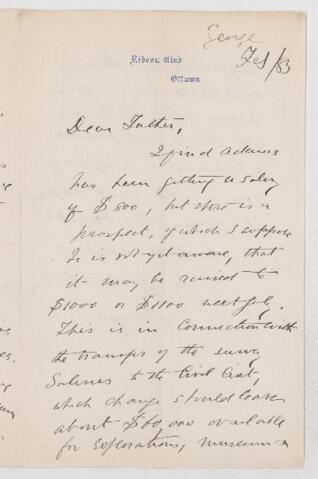 George
Feb/83
Rideau Club
Ottawa
Dear Father,
I find Adams
has been getting a salary
of $800, but there is a
prospect, of which I suppose
he is not yet aware, that
it may be raised to
$1000 or $1100 next July.
This is in Connection with
the transfer of the survey
Salaries to the Civil list,
which change should leave
about $60,000 available
for explorations, museum &